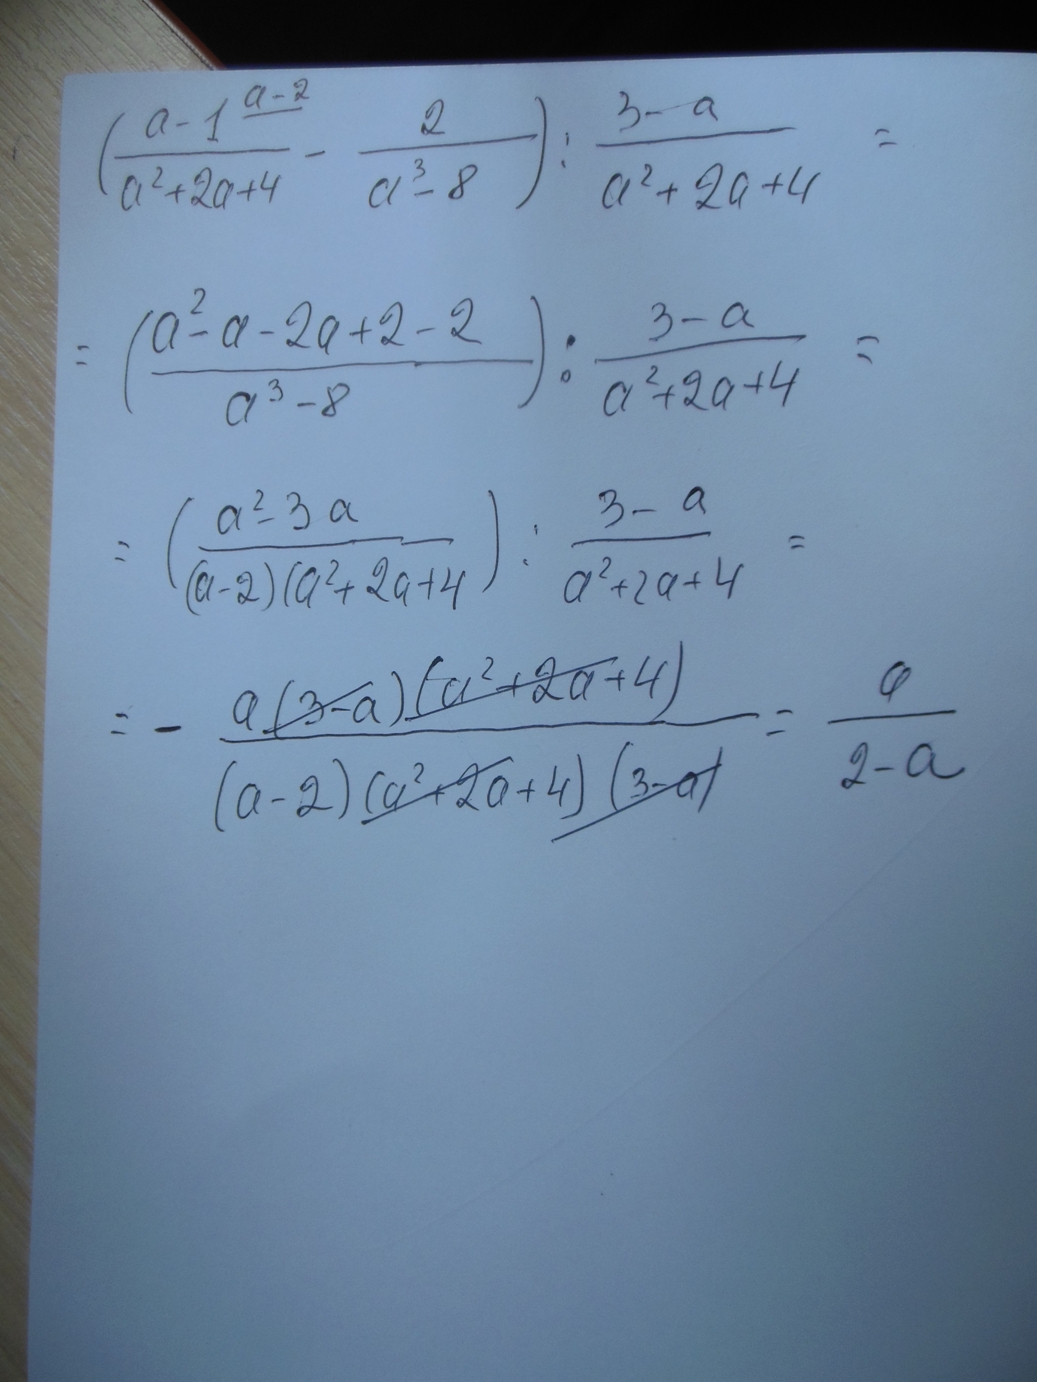 ((a-1)/(a²+2a+4) ^(a-2) - 2/(a³-8)) : (3-a)/(a²+2a+4) =
= ((a²-a-2a+2-2)/(a³-8)) : (3-a)/(a²+2a+4) =
= ((a²-3a)/((a-2)(a²+2a+4)) : (3-a)/(a²+2a+4) =
= - a(3-a)(a²+2a+4)/((a-2)(a²+2a+4)(3-a)) = a/(2-a)